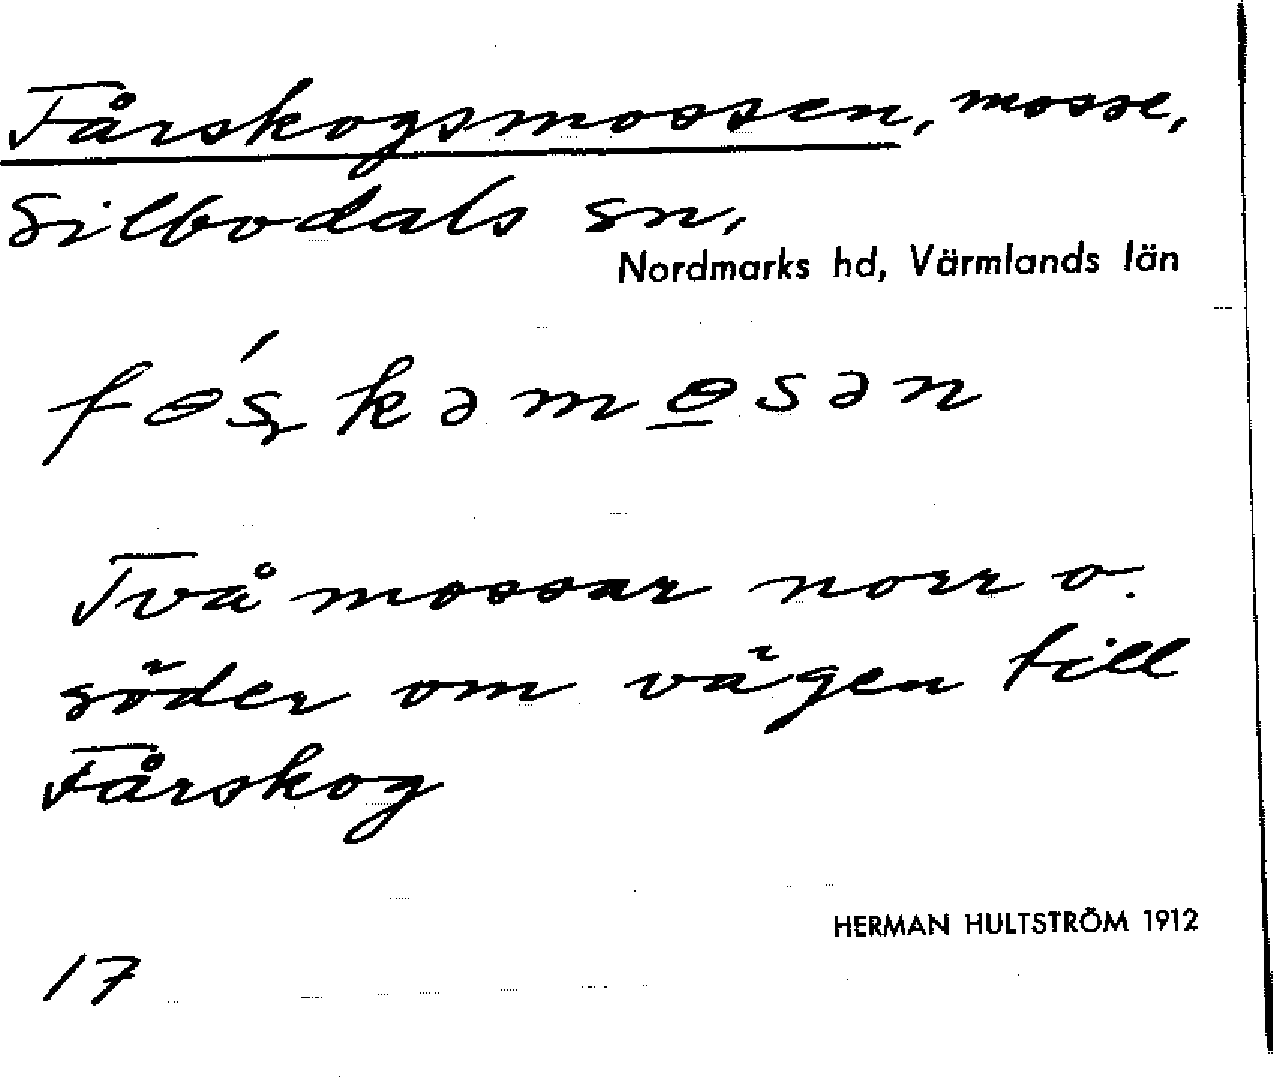 Fårskogsmossen, mosse,
Silbodals sn,
Nordmarks hd, Värmlands län
fɵ́ʂkəmɵ̲sən
Två mossar norr o.
söder om vägen till
Fårskog
HERMAN HULTSTRÖM 1912
17